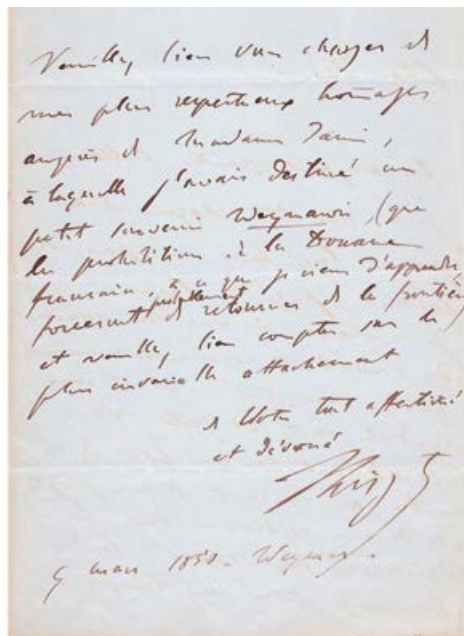 Veuillez bien vous charger de
mes plus respectueux homages
auprès de Madame Janin,
à laquelle j'avais destiné un
petit souvenir Weymarois, (que
les prohibitions de la Douane
française, à ce que je viens d'apprendre,
forceront probablement de retourner de la frontière)
et veuillez bien compter sur le
plus invariable attachement
de Votre tout affectionné
et dévoué
Liszt
mars 1850 - Weymar.